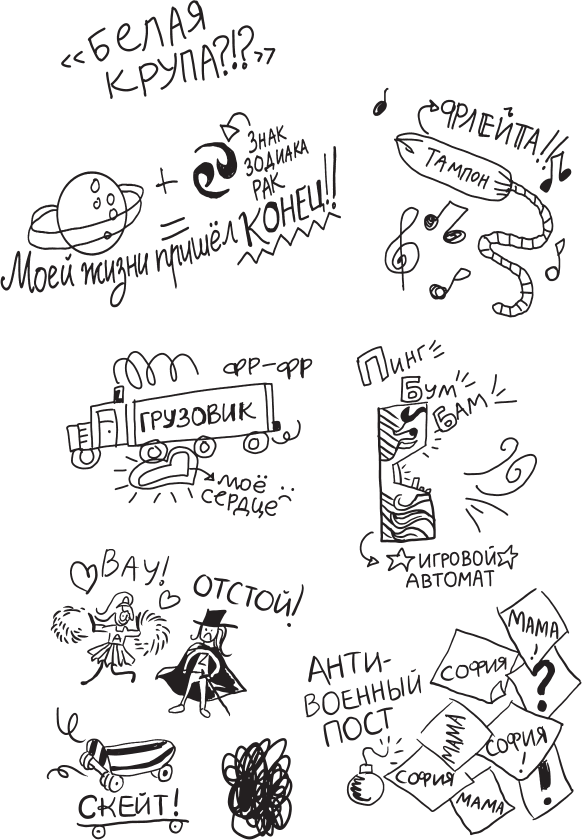 «БЕЛАЯ
КРУПА?!?»
ЗНАК
ЗОДИАКА
РАК
+
=
Моей жизни пришёл КОНЕЦ!!
ФЛЕЙТА!!
ТАМПОН
ФРР-ФРР
ГРУЗОВИК
МОЁ
СЕРДЦЕ
ПИНГ
БУМ
БАМ
ИГРОВОЙ
АВТОМАТ
ВАУ!
ОТСТОЙ!
СКЕЙТ!
АНТИ-
ВОЕННЫЙ
ПОСТ
МАМА
!
СОФИЯ
?
МАМА
СОФИЯ
!
СОФИЯ
МАМА
!